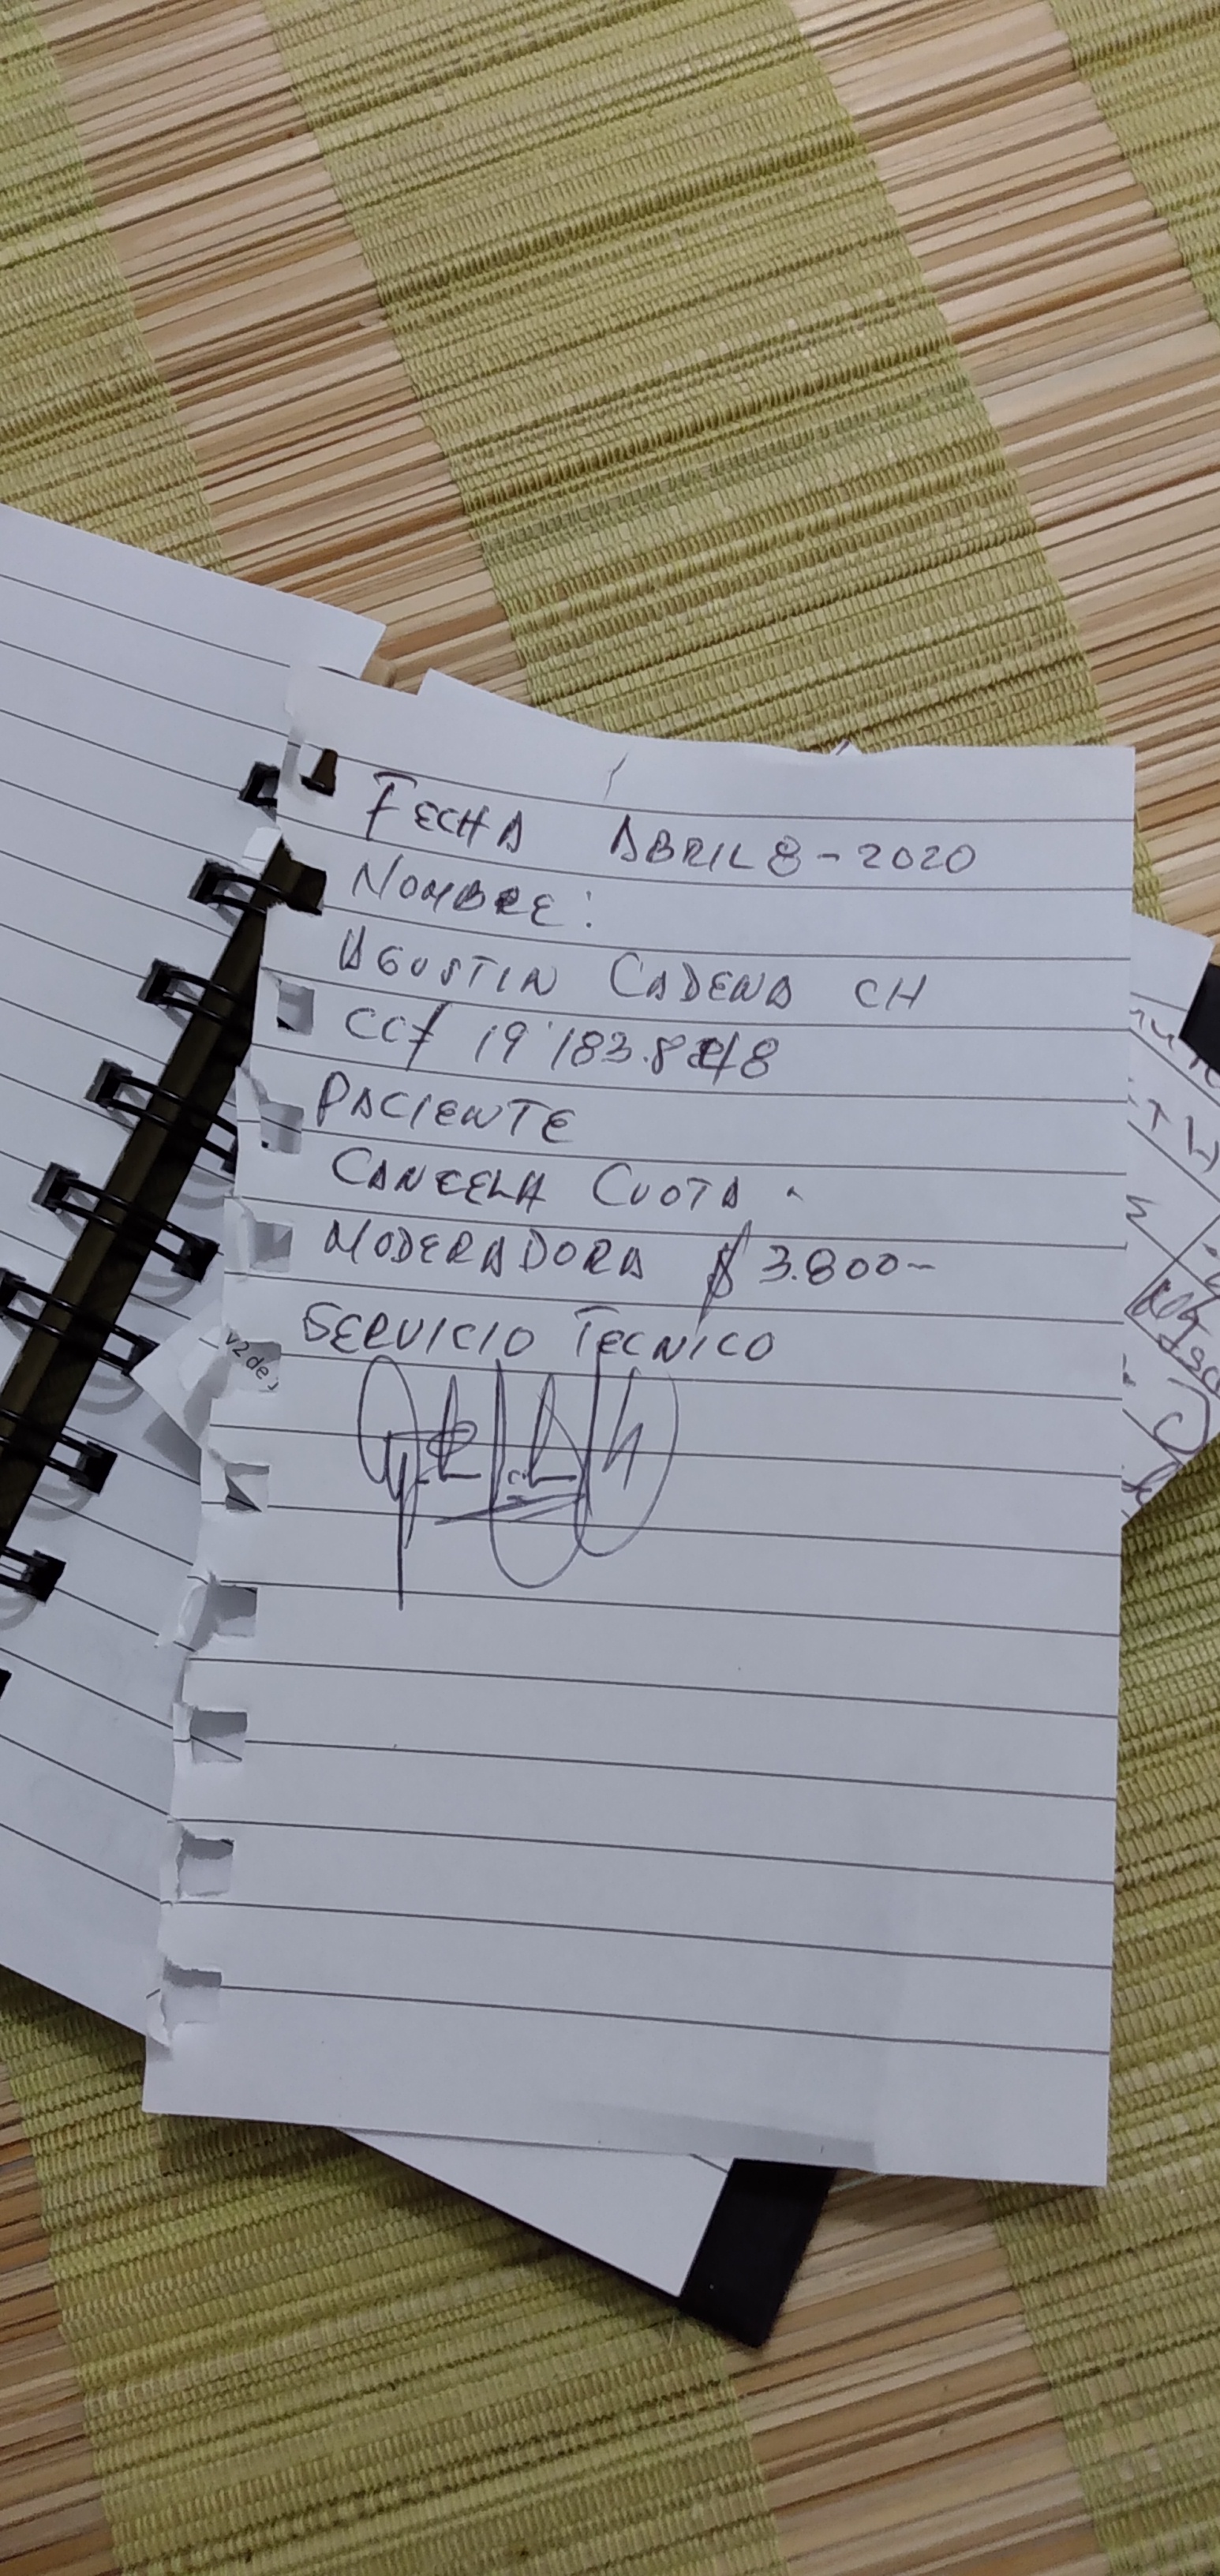 FECHA ABRIL 8-2020
NOMBRE:
AGUSTIN CADENA CH
PACIENTE
CANCELA CUOTA.
MODERADORA $ 3.800-
SERVICIO TECNICO
v2 de